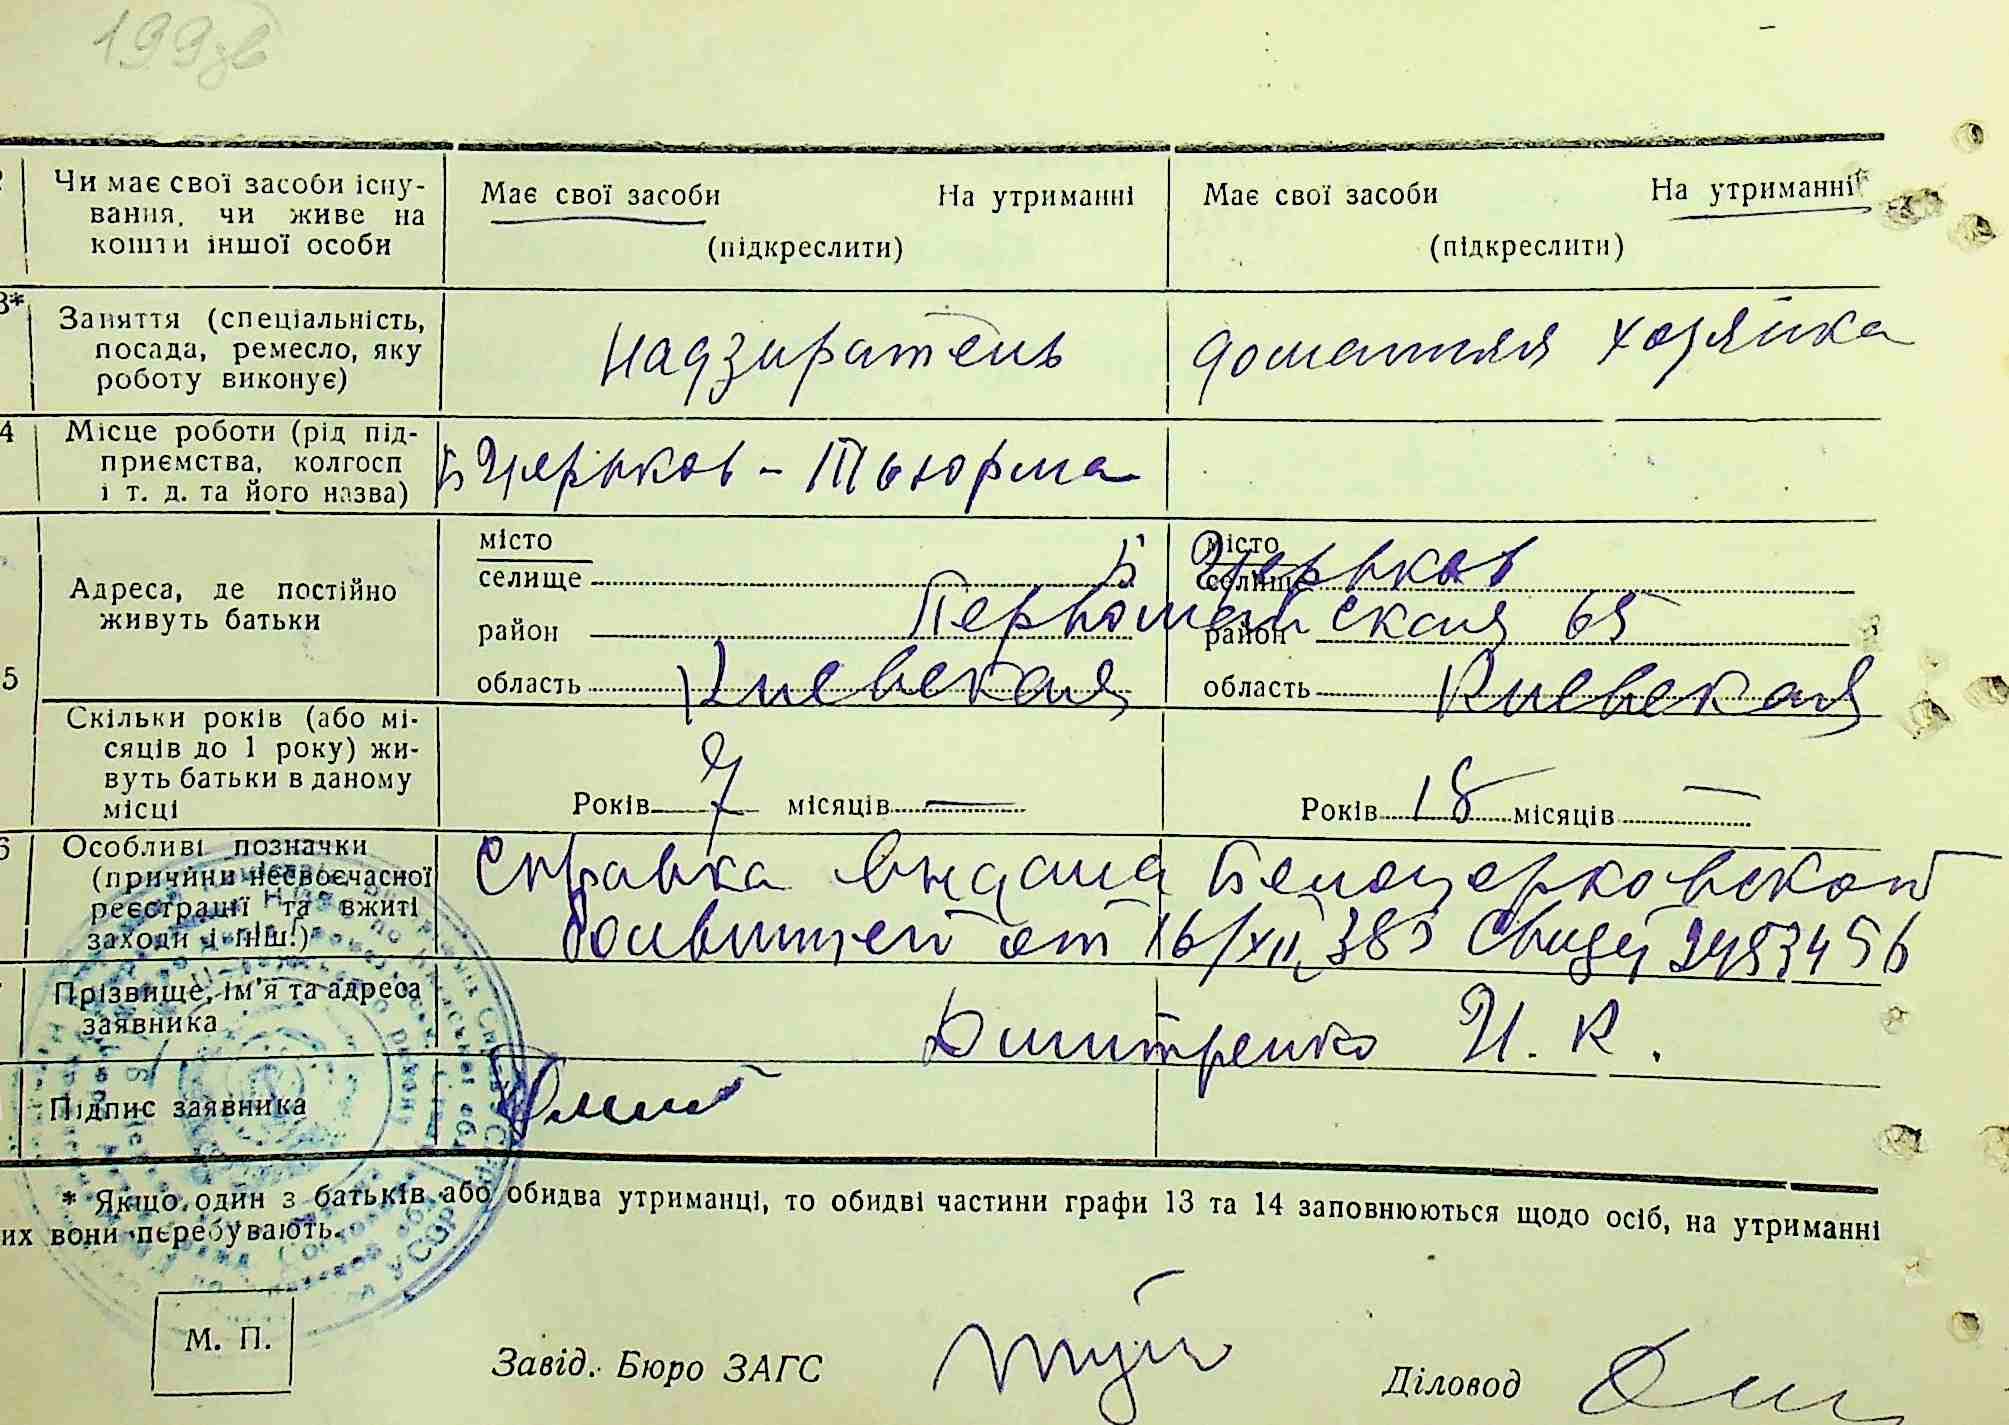 199зв
Чи має свої засоби існу- Має свої засоби На утриманні Має свої засоби На утриманні
вання, чи живе на
кошти іншої особи (підкреслити) (підкреслити)
3* Заняття (спеціальність,
посада, ремесло, яку надзиратель домашняя хозяйка
роботу виконує)
4 Місце роботи (рід під-
приємства, колгосп Б Церьков - Тьюрма
і т. д. та його назва)
місто місто
селище Б Церьков селище
Адреса, де постійно
живуть батьки район Первомейская 65 район
область Киевская область Киевская
5 Скільки років (або мі-
сяців до 1 року) жи-
вуть батьки в даному
місці Років 7 місяців — Років 18 місяців —
6 Особливі позначки
(причини несвоєчасної Справка видана Белоцерковской
реєстрації та вжиті
заходи і інш.) больницей от 16/XII 38
Прізвище, ім'я та адреса
заявника Дмитренко И. К.
Підпис заявника
* Якщо один з батьків або обидва утриманці, то обидві частини графи 13 та 14 заповнюються щодо осіб, на утриманні
их вони перебувають.
М. П.
Завід. Бюро ЗАГС Діловод